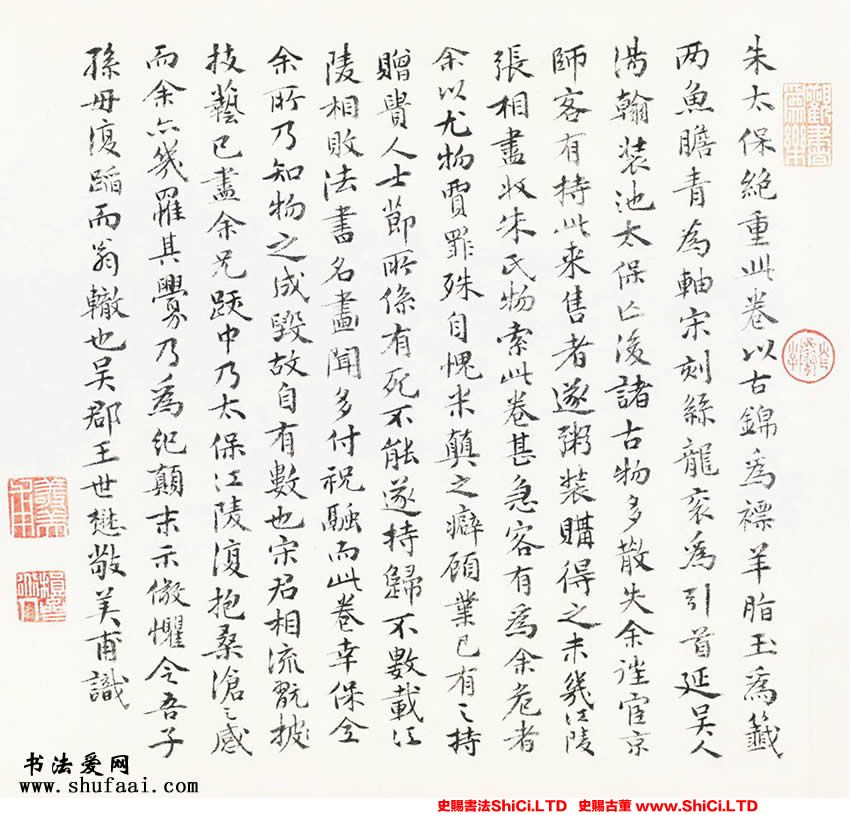 朱太保絕重此卷以古錦為褾羊脂玉為籤
两魚膽青為軸宋刻絲龍衮為引首延吳人
湯翰装池太保亡後諸古物多散失余往宦京
師客有持此来售者遂粥装購得之未幾江陵
張相盡收朱氏物索此卷甚急客有為余危者
余以尤物賈罪殊自愧米顛之癖顧業已有〻持
贈貴人士節所係有死不能遂持歸不數載江
陵相敗法書名畫聞多付祝融而此卷幸保全
余所乃知物之成毀故自有數也宋君相流翫披
技藝已盡余兄跋中乃太保江陵復抱桑滄〻感
而余亦幾罹其釁乃為紀顛末示儆懼令吾子
孫毋復蹈而翁轍也吳郡王世懋敬美甫識
觀書為樂
书法爱网
www.shufaai.com
史賜書法ShiCi.LTD 史賜古董 www.ShiCi.LTD